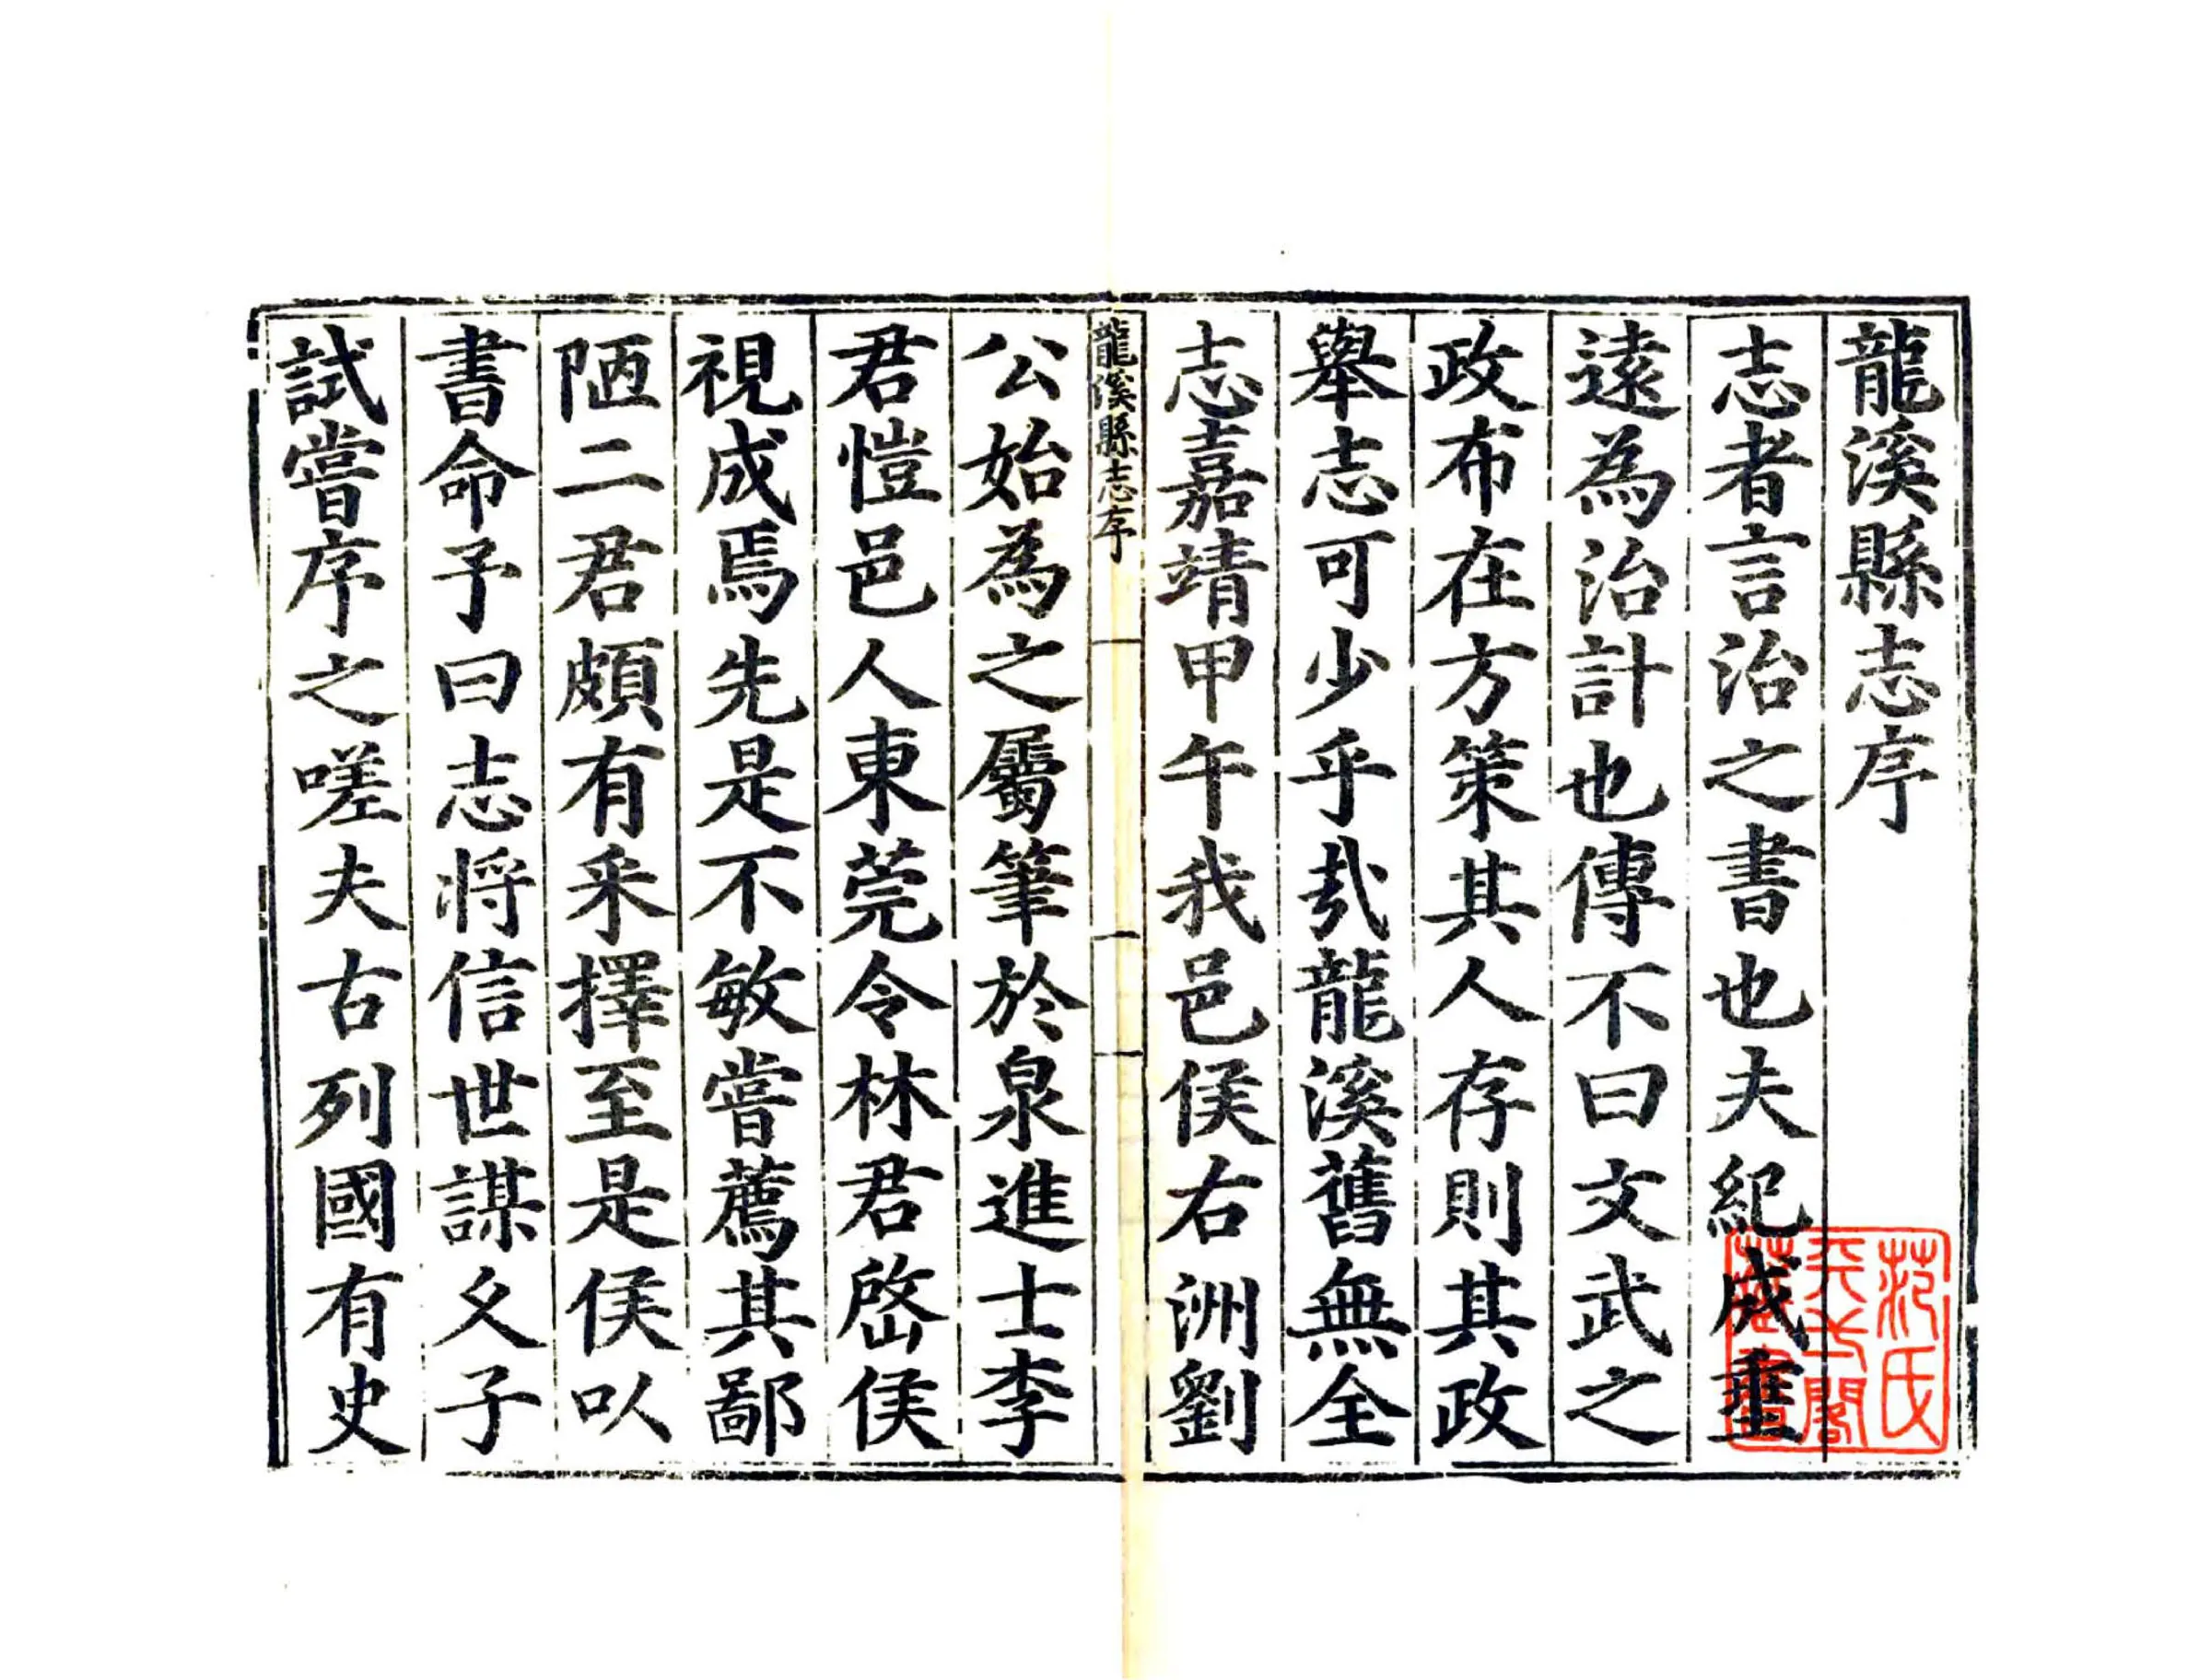 龍溪縣志序
志者言治之書也夫紀成垂
遠為治計也傳不曰文武之
政布在方策其人存則其政
舉志可少乎㢤龍溪舊無全
志嘉靖甲午我邑侯右洲劉
龍溪縣志序
一
公始為之屬筆於泉進士李
君愷邑人東莞令林君啓侯
視成焉先是不敏嘗薦其鄙
陋二君頗有采擇至是侯以
書命予曰志将信世謀乆子
試嘗序之嗟夫古列國有史
范氏
天一閣
藏書